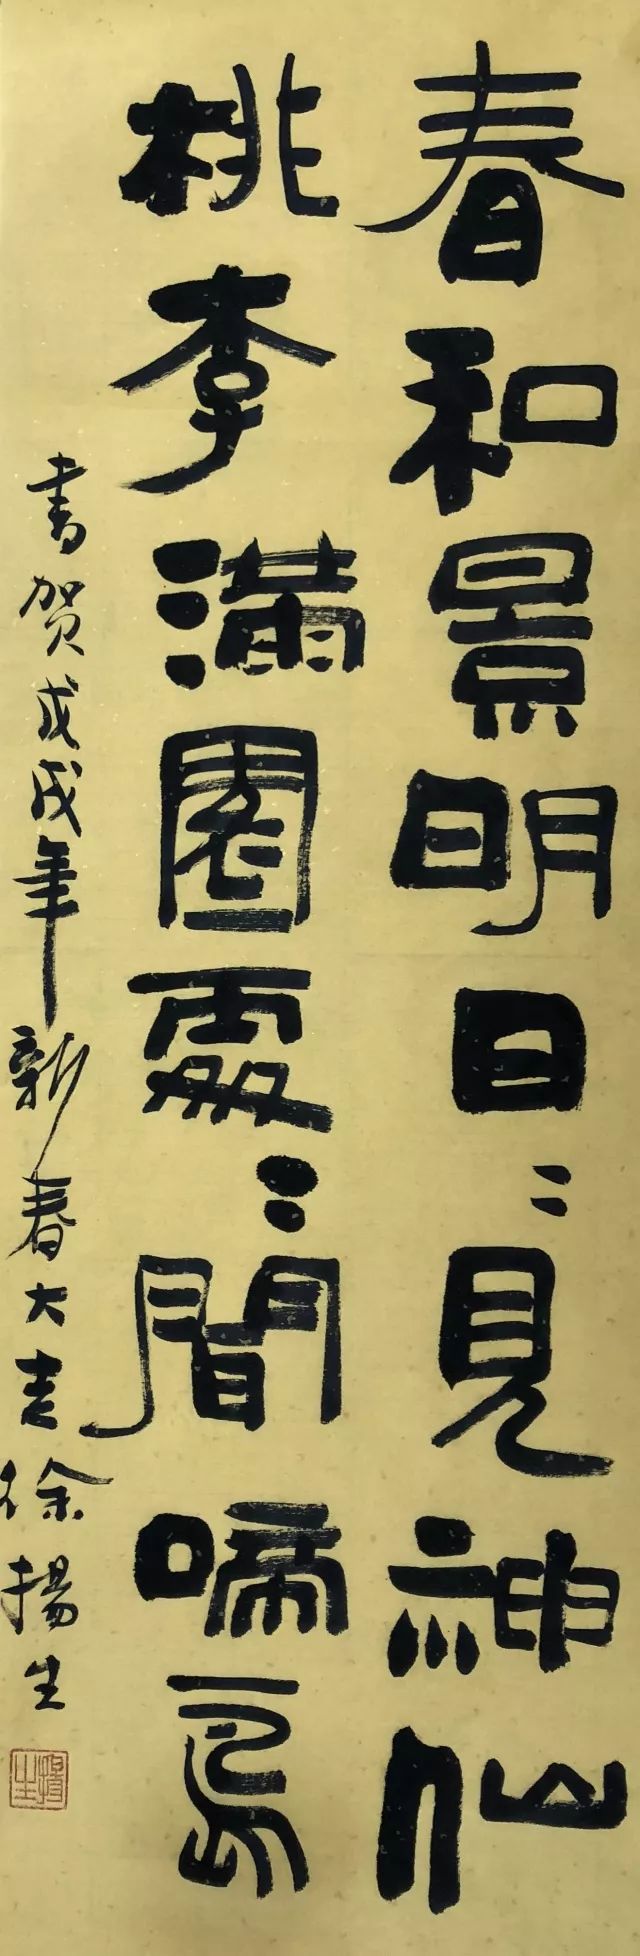 春和景明日〻見神仙
桃李滿園處〻聞啼鳥
書贺戊戌年新春大吉徐揚生